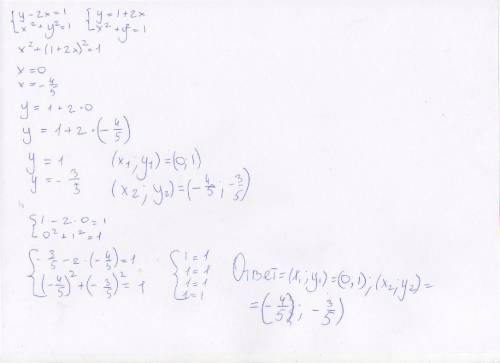 {y-2x=1 {y=1+2x
{x²+y²=1 {x²+y²=1
x²+(1+2x)²=1
x=0
x=-4/5
y=1+2·0
y=1+2·(-4/5)
y=1 (x₁;y₁)=(0;1)
y=-3/5 (x₂;y₂)=(-4/5;-3/5)
{1-2·0=1
{0²+1²=1
{-3/5-2·(-4/5)=1
{(-4/5)²+(-3/5)²=1
{1=1
{1=1
{1=1
{1=1
Ответ=(x₁;y₁)=(0;1);(x₂;y₂)=
=(-4/5);-3/5)